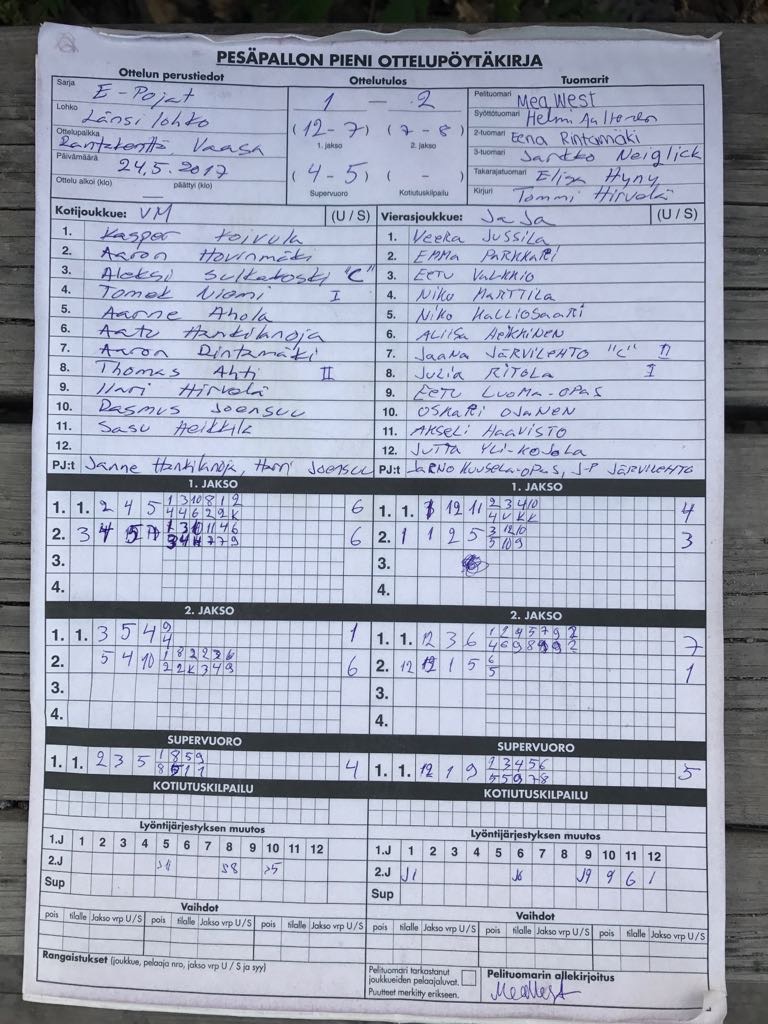 PESÄPALLON PIENI OTTELUPÖYTÄKIRJA
Ottelun perustiedot
Ottelutulos
Tuomarit
Sarja E-Pojat
Lohko Länsi lohko
Ottelupaikka Vaasa
Päivämäärä 24.5.2017
Ottelu alkoi (klo) päättyi (klo)
1 — 2
(12-7) (7-8)
1. jakso 2. jakso
(4-5) ( - )
Supervuoro Kotiutuskilpailu
Pelituomari Mea West
Syöttötuomari Helmi Aaltonen
2-tuomari Eena Rintamäki
3-tuomari Jarkko Neiglick
Takarajatuomari Elisa Hyny
Kirjuri Tommi Hirvelä
Kotijoukkue: VM (U / S)
1. Kasper Koivula
2. Aaron Hovinmäki
3. Aleksi Sulkakoski "C"
4. Tomek Niemi I
5. Aarne Ahola
6. Aatu Hankilanoja
7. Aaron Rintamäki
8. Thomas Ahti II
9. Harri Hirvelä
10. Rasmus Joensuu
11. Sasu Heikkilä
12.
PJ:t Janne Hankilanoja, Harri Joensuu
Vierasjoukkue: JaJa (U / S)
1. VEERA JUSSILA
2. EMMA PARKKARI
3. EETU VALKKIO
4. NIKO MARTTILA
5. NIKO KALLIOSAARI
6. ALIISA HEIKKINEN
7. JAANA JÄRVILEHTO "C" II
8. JULIA RITOLA I
9. EETU LUOMA-OPAS
10. OSKARI OJANEN
11. AKSELI HAAVISTO
12. JUTTA YLI-KOJOLA
PJ:t JARNO KUUSELA-OPAS, J-P JÄRVILEHTO
1. JAKSO
1. 1. 2 4 5 1 3 10 8 1 2 6
4 4 6 2 2 K
2. 3 6
3.
4.
1. JAKSO
1. 1. 12 11 2 3 4 10 4
4 V K K
2. 1 1 2 5 3 12 10 3
5 10 9
3.
4.
2. JAKSO
1. 1. 3 5 4 9 1
4
2. 5 4 10 1 8 2 2 3 6 6
2 2 K 3 4 9
3.
4.
2. JAKSO
1. 1. 12 3 6 1 2 4 5 7 9 2 7
2. 12 12 1 5 6 1
5
3.
4.
SUPERVUORO
1. 1. 2 3 5 1 8 5 9 4
SUPERVUORO
1. 1. 12 1 9 1 3 4 5 6 5
5 5 9 7 8
KOTIUTUSKILPAILU
KOTIUTUSKILPAILU
Lyöntijärjestyksen muutos
1.J 1 2 3 4 5 6 7 8 9 10 11 12
2.J
Sup
Lyöntijärjestyksen muutos
1.J 1 2 3 4 5 6 7 8 9 10 11 12
2.J J1 J6 J9 9 6 1
Sup
Vaihdot
pois tilalle Jakso vrp U/S pois tilalle Jakso vrp U/S pois tilalle Jakso vrp U/S
Vaihdot
pois tilalle Jakso vrp U/S pois tilalle Jakso vrp U/S pois tilalle Jakso vrp U/S
Rangaistukset (joukkue, pelaaja nro, jakso vrp U / S ja syy)
Pelituomari tarkastanut
joukkueiden pelaajaluvat.
Puutteet merkitty erikseen.
Pelituomarin allekirjoitus
Mea West